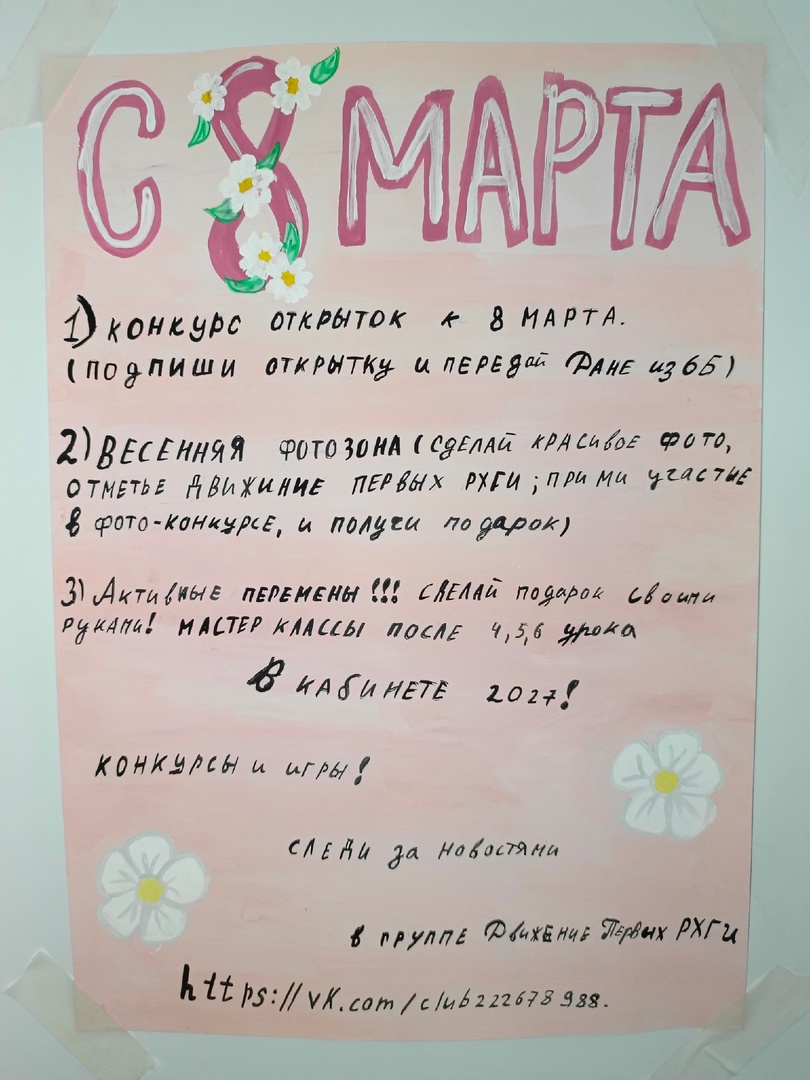 С 8 МАРТА
1) КОНКУРС ОТКРЫТОК К 8 МАРТА.
(ПОДПИШИ ОТКРЫТКУ И ПЕРЕДАЙ ДАНЕ ИЗ 6Б)
2) ВЕСЕННЯЯ ФОТОЗОНА (СДЕЛАЙ КРАСИВОЕ ФОТО,
ОТМЕТЬЕ ДВИЖИНИЕ ПЕРВЫХ РХГИ; ПРИМИ УЧАСТИЕ
В ФОТО-КОНКУРСЕ, И ПОЛУЧИ ПОДАРОК)
3) АКТИВНЫЕ ПЕРЕМЕНЫ!!! СДЕЛАЙ ПОДАРОК СВОИМИ
РУКАМИ! МАСТЕР КЛАССЫ ПОСЛЕ 4,5,6 УРОКА
В КАБИНЕТЕ 2027!
КОНКУРСЫ И ИГРЫ!
СЛЕДИ ЗА НОВОСТЯМИ
В ГРУППЕ ДВИЖЕНИЕ ПЕРВЫХ РХГИ
https://vk.com/club222678988.